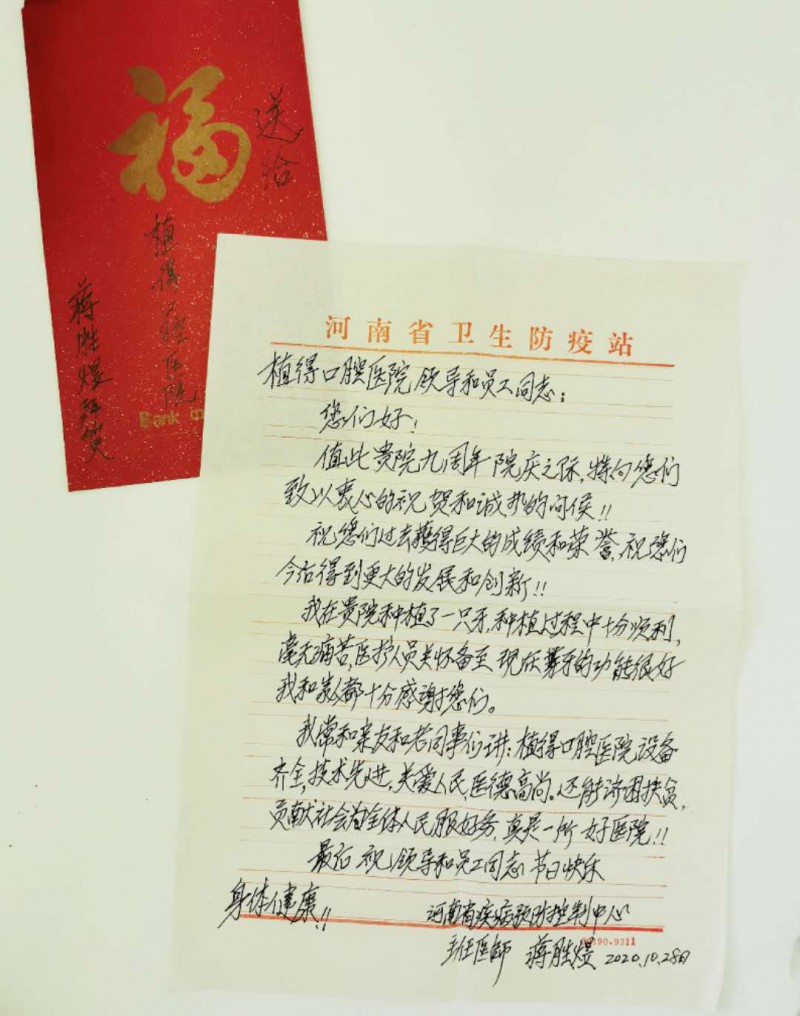 福
送给
植得口腔医院
蒋胜煌拜贺
Bank
河南省卫生防疫站
植得口腔医院领导和员工同志：
您们好！
值此贵院九周年院庆之际，特向您们
致以衷心的祝贺和诚挚的问候！！
祝您们过去获得巨大的成绩和荣誉，祝您们
今后得到更大的发展和创新！！
我在贵院种植了一只牙，种植过程中十分顺利，
毫无痛苦，医护人员关怀备至，现在算牙的功能很好
我和家人都十分感谢您们。
我常和亲友和老同事们讲：植得口腔医院设备
齐全，技术先进，关爱人民，医德高尚。还能济困扶贫，
贡献社会为全体人民服好务，真是一所好医院！！
最后祝领导和员工同志节日快乐
身体健康！！
河南省疾病预防控制中心
主任医师 蒋胜煌 2020.10.28日